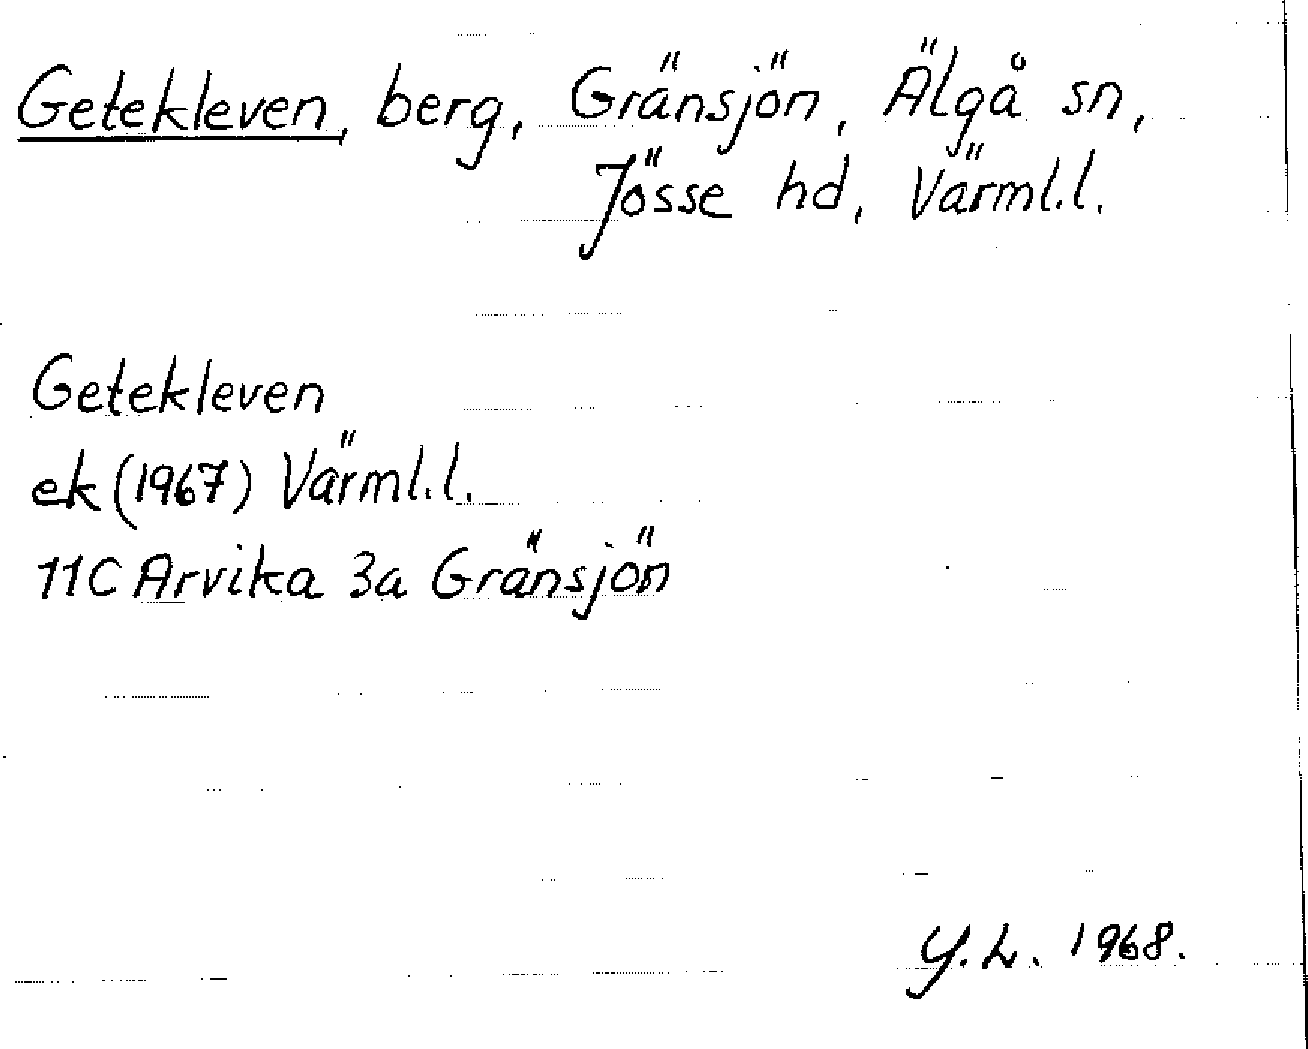 Getekleven, berg, Gränsjön, Älgå sn,
Jösse hd, Värml.l.
Getekleven
ek (1967) Värml.l.
11C Arvika 3a Gränsjön
Y.L. 1968.